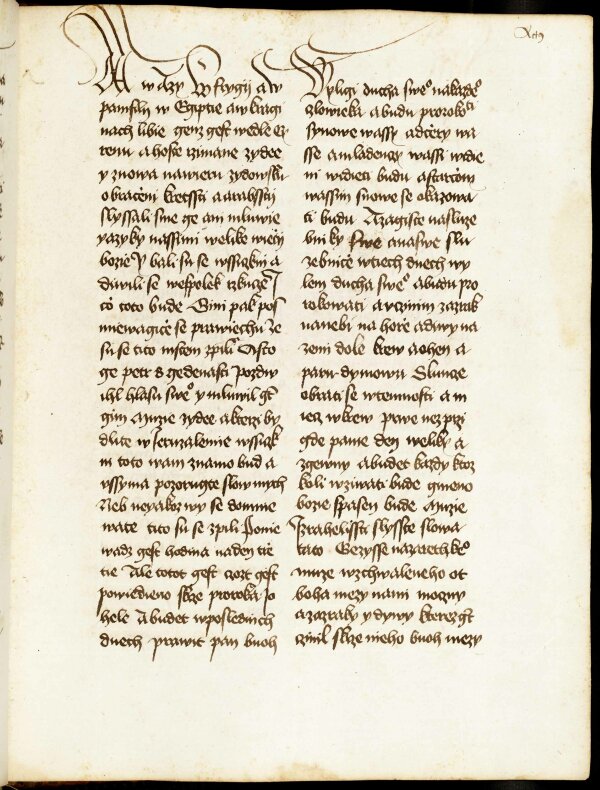 A w azy W frygij a w
pamfili w Egiptie a w kragi
nach libie genz gest wedle Cy
renu a hoste rzimane zydee
y znowa nawieru zydowsku
obraceni kretssti a arabssti
slyssali sme ge ani mluwie
yazyky nassimi welike wieczi
bozie y bali su se wssickni a
diwili se wespolek rzkuce I
co toto bude Gini pak pos
miewagice se prawiechu Ze
su se tito mstem zpili A sto
ge petr s gedenasti Pozdwi
ihl hlasu sweo y mluwil gt
gim Muzie zydee a kterzi by
dlite w Jeruzalemie wssick
ni toto wam znamo bud a
vssyma pozorugte slow mych
Neb neyakoz wy se domnie
wate tito su se zpili Ponie
wadz gest hodina na den tre
tie Ale totot gest czozt gest
powiedieno skrze proroka Jo
hele A budet w poslednich
dnech prawit pan buoh
Vyligi ducha sweo na kazdeo
czlowieka a budu prorokoti
synowe wassy a dcery wa
sse a mladency wassi widie
ni widieti budu a starcom
wassim snowe se okazowa
ti budu A zagiste na sluze
bniky swe a na swe slu
zebnice w tiech dnech wy
lem ducha sweo a budu pro
rokowati a vcinim zazrak
na nebi na horze a diwy na
zemi dole krew a ohen a
paru dymowu Slunce
obrati se w temnosti a m
iesiec w krew prwe nez przi
gde panie den weliky a
zgewny a budet kazdy ktoz
koli wziwati bude gmeno
bozie spasen bude Muzie
Izrahelissti slysste slowa
tato Gezysse nazaretskeo
muze wzchwaleneho ot
boha mezy nami moczny
a zazraky y diwy kterez gt
czinil skrze nieho buoh mezy